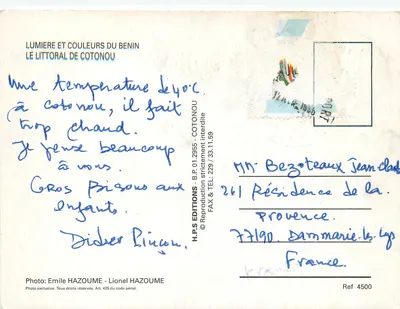 LUMIERE ET COULEURS DU BENIN
LE LITTORAL DE COTONOU
Une température de 40°C
à cotonou, il fait
trop chaud.
Je pense beaucoup
à vous.
Gros Bisous aux
enfants.
Didier
Photo: Emile HAZOUME - Lionel HAZOUME
Photo exclusive. Tous droits réservés. Art. 425 du code pénal.
H.P.S EDITIONS - B.P. 01.2955 - COTONOU
© Reproduction strictement interdite
FAX & TEL: 229 / 33.11.59
MM. Bezoteaux Jean Claude
261 Résidence de la
Provence.
77190 Dammarie-les-Lys
France.
Ref 4500